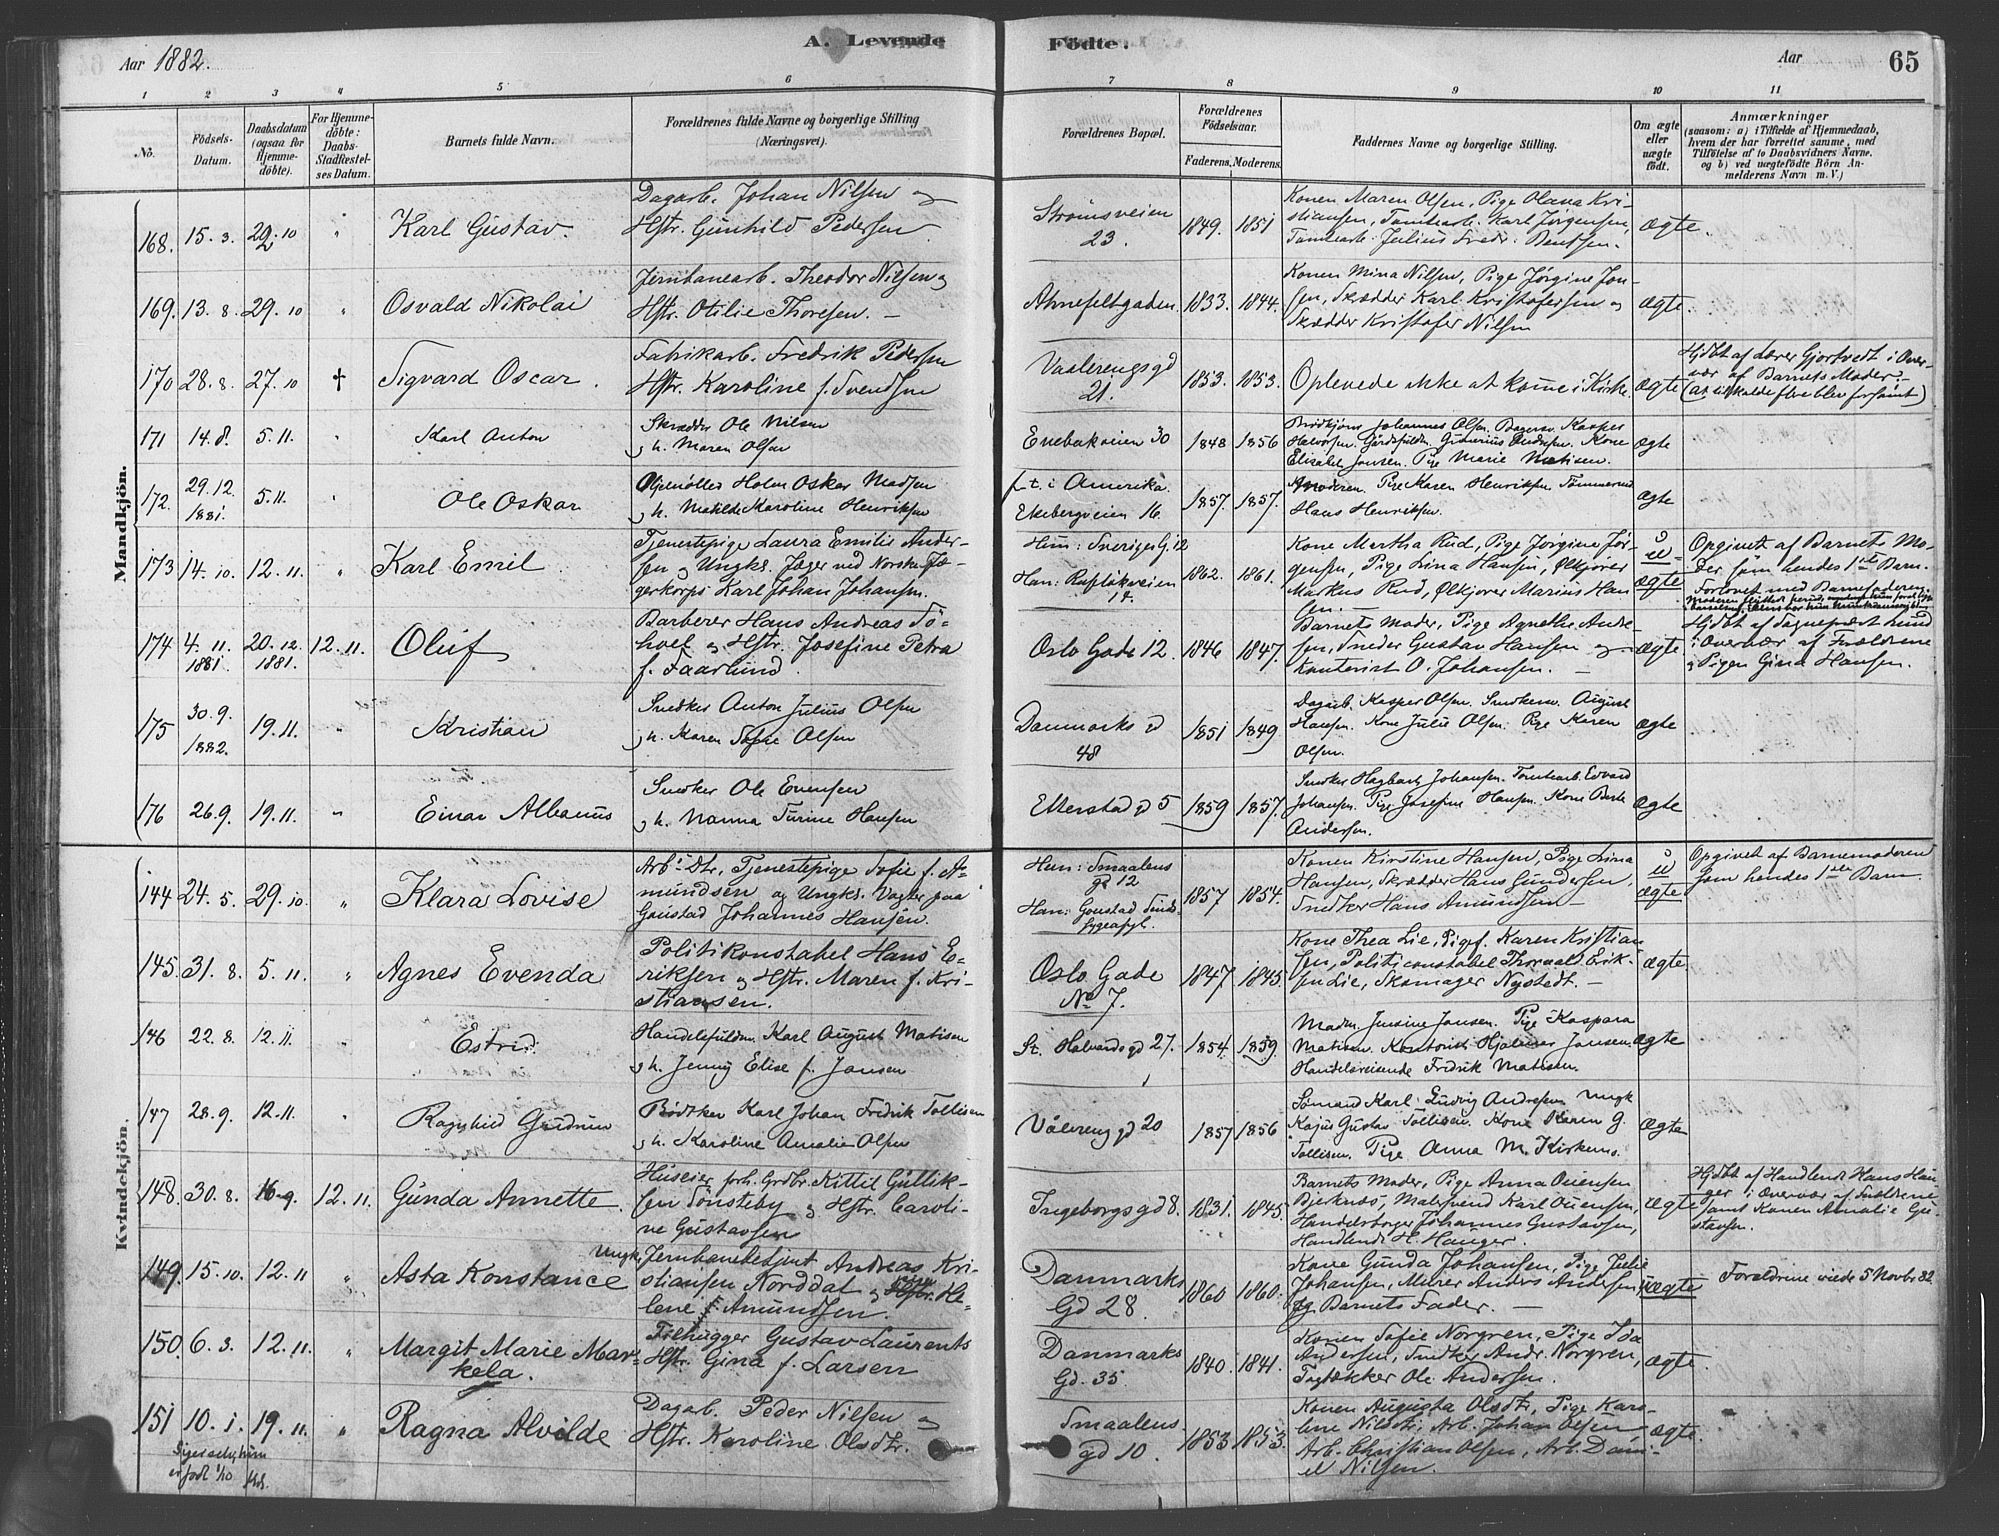 Aar 1882.
A. Levende
Födte.
Aar
65
1
2
3
4
5
6
7
8
9
10
11
No.
Födsels-
Datum.
Daabsdatum
(ogsaa for
Hjemme-
döbte).
For Hjemme-
döbte:
Daabs-
Stadfæstel-
ses Datum.
Barnets fulde Navn.
Forældrenes fulde Navne og borgerlige Stilling
(Næringsvei).
Forældrenes Bopæl.
Forældrenes
Födselsaar.
Faderens. Moderens.
Faddernes Navne og borgerlige Stilling.
Om ægte
eller
uægte
født.
Anmærkninger
(saasom: a) i Tilfælde af Hjemmedaab,
hvem der har forrettet samme, med
Tilföielse af to Daabsvidners Navne.
og b) ved uægtefödte Börn An-
melderens Navn m. V.)
Mandkjön.
168. 15. 3. 29. 10 " Karl Gustav.
Dagarb. Johan Nilsen og
Hstr. Gunhild Pedersen.
Strømsveien
23.
1849. 1851
Konen Maren Olsen, Pige Olava Kri-
stiansen, Tomtearb. Karl Jørgensen,
Tomtearb. Julius Fredr. Bentsen.
ægte.
169. 13. 8. 29. 10 " Osvald Nikolai
Jernbanearb. Theodor Nilsen og
Hstr. Otilie Thoresen. –
Ahnefeltgaden. 1833. 1844.
Konen Mina Nilsen, Pige Jørgine Jon-
sen, Skrædder Karl Kristofersen og
Skrædder Kristofer Nilsen
ægte.
170 28. 8. 27. 10 † Sigvard Oscar.
Fabrikarb. Fredrik Pedersen
Hstr. Karoline f. Svendsen
Vaalerengsgd
21.
1853. 1853.
Oplevede ikke at komme i Kirke.
ægte
Hjdbt af Lærer Gjortvedt i Over-
vær af Barnets Moder –
(At tilkalde flere blev forsømt)
171 14. 8. 5. 11. " Karl Anton
Skrædder Ole Nilsen
og h. Maren Olsen
Enebakveien 30 1848 1856
Brødkjører Johannes Olsen. Bagersv. Kasper
Halvorsen. Elisabet Jonsen. Pige Marie Matisen.
ægte
172. 29. 12. 1881. 5. 11. " Ole Oskar
Holm Oskar Madsen
og h. Matilde Karoline Henriksen
f. t. i Amerika.
Ekebergveien 16.
1857. 1857.
Moderen. Pige Karen Henriksen
Hans Henriksen.
ægte
173 14. 10. 12. 11. " Karl Emil
Tjenestepige Laura Emilie Ander-
sen og Ungk. Jæger ved Norske Jæ-
gerkorps Karl Johan Johansen.
Hun: SverigesG. 12
Han:
1862. 1861.
Kone Martha Rud, Pige Jørgine Jør-
gensen, Pige Lina Hansen, Ølkjører
Markus Rud, Ølkjører Marius Han-
sen. –
u
ægte
Opgivet af Barnets Mo-
der som hendes 1ste Barn.
Forlovet med Barnefaderen.
174 4. 11. 1881 20. 12. 1881. 12. 11. Oluf
Barberer Hans Andreas
og Hstr. Josefine Petra
f. Faarlund.
Oslo Gade 12. 1846 1847.
Barnets Moder, Pige Agnethe Ander-
sen, Snedker Gustav Hansen og
Kontorist O. Johansen. –
ægte
Hjdbt af Sogneprest Lund
i Overvær af Forældrene
og Pigen Gina Hansen.
175 30. 9. 1882. 19. 11. " Kristian
Snedker Anton Julius Olsen
og h. Karen Sofie Olsen
Danmarks gd
48
1851 1849
Dagarb. Kasper Olsen. Snedkersv. August
Hansen. Kone Julie Olsen. Pige Karen
Olsen.
ægte
176 26. 9. 19. 11. " Einar Albanus
Snedker Ole Evensen
og h. Nanna Turine Hansen
Etterstad gd 5 1859 1857.
Snedker Hagbart Johansen. Tomtearb. Edvard
Johansen. Pige Josefine Hansen. Kone
Andersen.
ægte
Kvindekjön.
144 24. 5. 29. 10. " Klara Lovise
Arbr Dtr., Tjenestepige Sofie f. A-
mundsen og Ungk. Vogter paa
Goustad Johannes Hansen.
Hun: Smaalens
gd 12
Han: Goustad Sinds-
sygeasyl.
1857 1854.
Konen Kirstine Hansen, Pige Lina
Hansen, Skrædder Hans Gundersen,
Snedker Hans Amundsen –
u
ægte
Opgivet af Barnemoderen
som hendes 1ste Barn.
145. 31. 8. 5. 11. " Agnes Evenda
Politikonstabel Hans E-
riksen og Hstr. Maren f. Kri-
stiansen.
Oslo Gade
No 7.
1847 1845.
Kone Thea Lie, Pige f. Karen Kristian-
sen, Politiconstabel Thorvald Erik-
sen Lie, Skomager Nystedt. –
ægte.
146 22. 8. 12. 11. " Estrid.
Handelsfuldm. Karl August Matisen
og h. Jenny Elise f. Jansen
St. Halvards gd 27. 1854. 1859.
Madm. Jensine Jansen. Pige Kaspara
Matisen. Kontorist Hjalmar Jansen.
Handelsreisende Fridrik Matisen.
ægte
147 28. 9. 12. 11. " Ragnhild Gudrun
Bødtker Karl Johan Fredrik Tollisen
og h. Karoline Amalie Olsen
Vålereng gd 20 1857 1856
Sömand Karl Ludvig Andresen Ungk
Kajus Gustav Tollisen. Kone Karen G.
Tollisen. Pige Anna M. Kirkerns.
ægte
148. 30. 8. 16. 9. 12. 11. Gunda Annette.
Huseier forh. Grdbr. Kittil Gullik-
sen Tönsteby og Hstr. Caroli-
ne Gustavsen
Ingeborgs gd 8. 1831. 1845.
Barnets Moder, Pige Anna Ouensen
Bjerknæs, Malersvend Karl Ouensen,
Handelsborger Johannes Gustavsen,
Handlende H. Hanger.
ægte
Hjdbt af Handlende Hans Han-
ger i Overvær af Forældrene
samt Konen Amalie Gu-
stavsen.
149 15. 10. 12. 11 " Asta Konstance
Ungk. Jernbanebetjent Andreas Kri-
stiansen Norddal og Pige He-
lene f. Amundsen.
Danmarks
Gd 28.
1860 1860.
Kone Gunda Johansen, Pige Julie
Johansen, Murer Anders Andersen,
og Barnets Fader. –
uægte
Forældrene viede 5 Novbr. 82.
150. 6. 3. 12. 11. " Margit Marie Mar-
kela.
Filhugger Gustav Laurents
Hstr. Gina f. Larsen
Danmarks
Gd. 35.
1840. 1841.
Konen Sofie Norgren, Pige Ida
Andersen, Snedker Andr. Norgren,
Tagtækker Ole Andersen.
ægte.
151 10. 1. 19. 11. " Ragna Alvilde
Dagarb. Peder Nilsen og
Hstr. Karoline Olsdtr.
Smaalens
gd 10.
1853. 1853.
Konen Augusta Olsdtr, Pige Karo-
line Nilsdtr, Arb. Johan Olsen,
Arb. Christian Olsen, Arb. Dani-
el Nilsen.
ægte.
er født 1/10